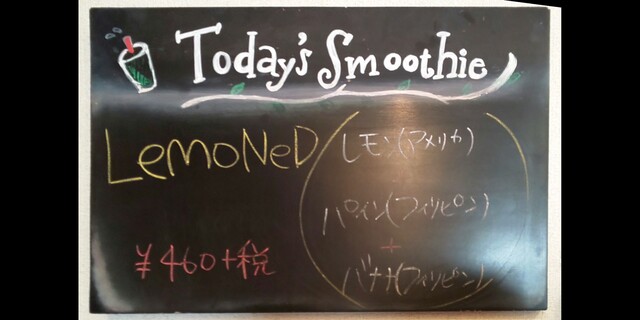 Today's Smoothie
LeMoNeD
レモン(アメリカ)
パイン(フィリピン)
+
バナナ(フィリピン)
¥460+税